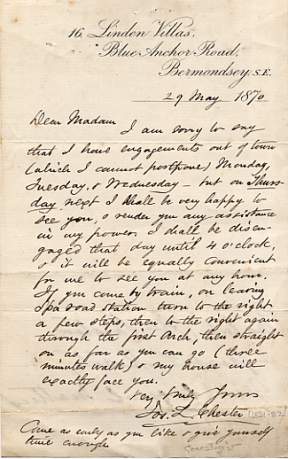 16 Linden Villas,
Blue Anchor Road,
Bermondsey, S.E.
29 May 1870
Dear Madam
I am sorry to say
that I have engagements out of town
(which I cannot postpone) Monday,
Tuesday, & Wednesday – but on Thurs-
day next I shall be very happy to
see you, & render you any assistance
in my power. I shall be disen-
gaged that day until 4 o'clock,
& it will be equally convenient
for me to see you at any hour.
If you come by train, on leaving
Spa road station turn to the right
a few steps, then to the right again
through the first Arch, then straight
on as far as you can go (three
minutes walk) & my house will
exactly face you.
Very truly Yours
Jos. L. Chester
Come as early as you like & give yourself
time enough